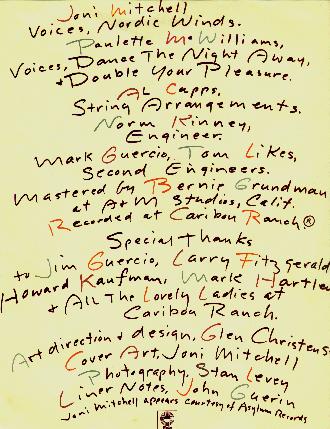 Joni Mitchell
Voices, Nordic Winds.
Paulette McWilliams,
Voices, Dance The Night Away,
+ Double Your Pleasure.
AL Capps,
String Arrangements.
Norm Kinney,
Engineer.
Mark Guercio, Tom Likes,
Second Engineers.
Mastered by Bernie Grundman
at A+M Studios, Calif.
Recorded at Caribou Ranch.®
Special Thanks
to Jim Guercio, Larry Fitzgerald
Howard Kaufman, Mark Hartley
+ All The Lovely Ladies at
Caribou Ranch.
Art direction + design, Glen Christens
Cover Art, Joni Mitchell
Photography, Stan Levey
Liner Notes, John Guerin
Joni Mitchell appears courtesy of Asylum Records